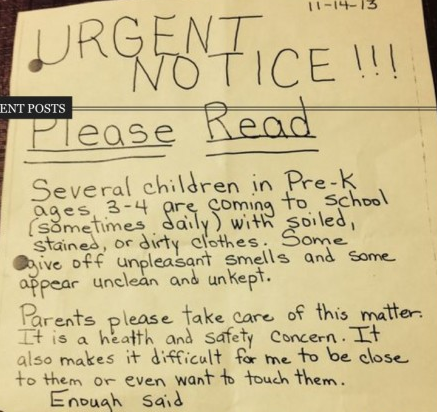 11-14-13
URGENT
NOTICE!!!
ENT POSTS
Please Read
Several children in Pre-K
ages 3-4 are coming to school
(sometimes daily) with soiled,
stained, or dirty clothes. Some
give off unpleasant smells and some
appear unclean and unkept.
Parents please take care of this matter.
It is a health and safety concern. It
also makes it difficult for me to be close
to them or even want to touch them.
Enough said